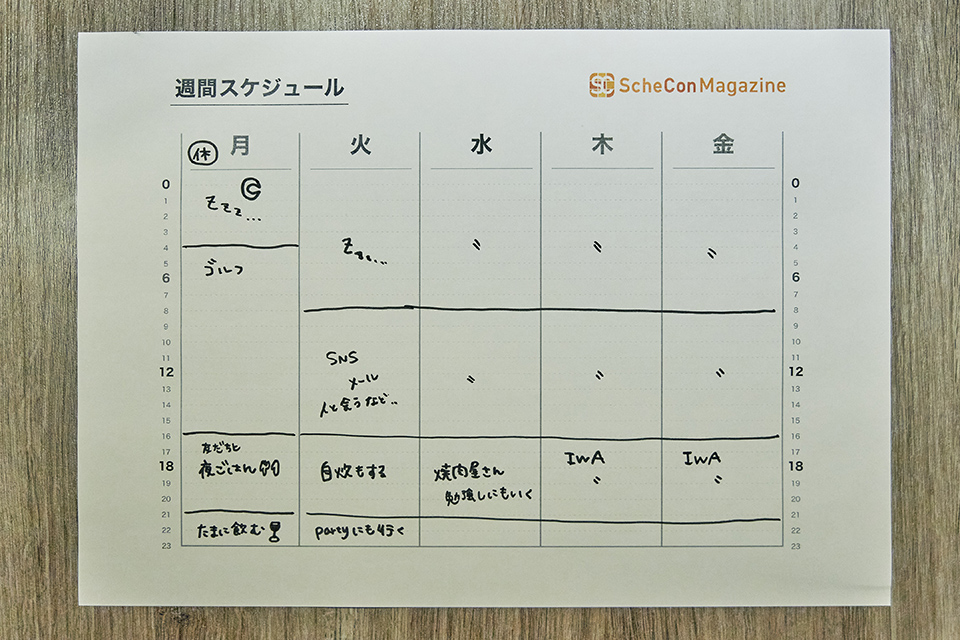 週間スケジュール
SC ScheConMagazine
休 月 火 水 木 金
0 0
1 1
2 2
3 3
4 4
5 5
6 6
7 7
8 8
9 9
10 10
11 11
12 12
13 13
14 14
15 15
16 16
17 17
18 18
19 19
20 20
21 21
22 22
23 23
Zzz...
ゴルフ
友だちと
夜ごはん
たまに飲む
Zzz...
SNS
メール
人と会うなど..
自炊もする
partyにも行く
〃
〃
焼肉屋さん
勉強しにもいく
〃
〃
IWA
〃
〃
〃
IWA
〃